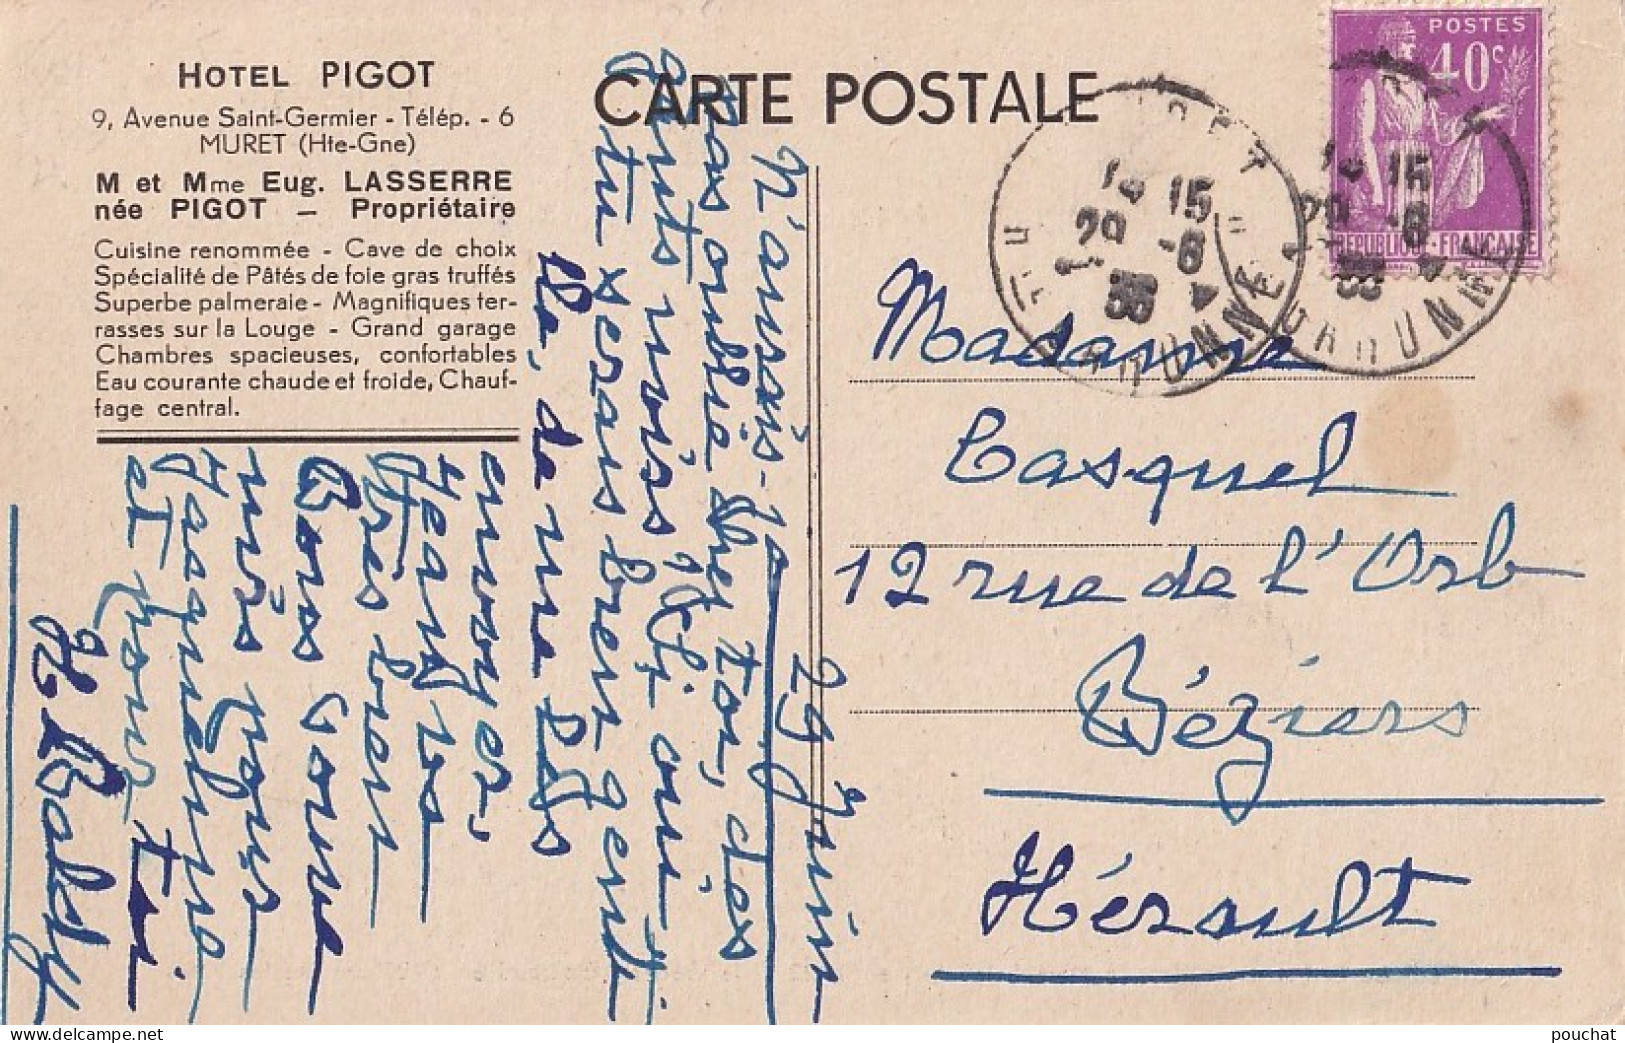 HOTEL PIGOT
9, Avenue Saint-Germier - Télép. - 6
MURET (Hte-Gne)
M et Mme Eug. LASSERRE
née PIGOT — Propriétaire
Cuisine renommée - Cave de choix
Spécialité de Pâtés de foie gras truffés
Superbe palmeraie - Magnifiques ter-
rasses sur la Louge - Grand garage
Chambres spacieuses, confortables
Eau courante chaude et froide, Chauf-
fage central.
CARTE POSTALE
POSTES
40c
REPUBLIQUE-FRANÇAISE
15
29 -6
35
GARONNE
15
29 -6
35
GARONNE
Madame
Casquel
12 rue de l'Orb
Béziers
Hérault
29 Juin
N'aurais-je
pas oublié chez toi, des
gants noirs ? Si oui
tu serais bien gentille
de me les
envoyer,
Jean va
très bien
Bons
pour
Jacqueline
et pour toi
pouchat